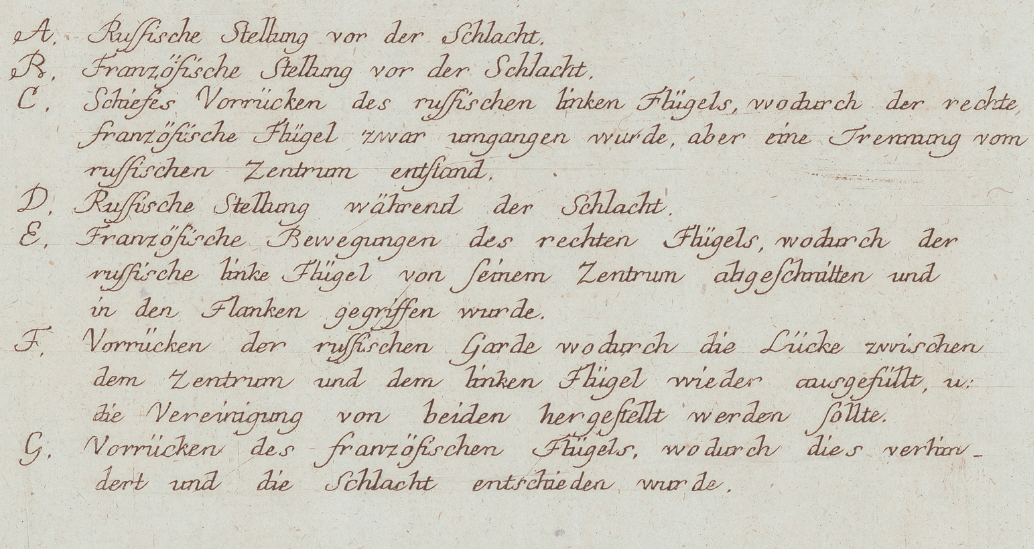 A. Russische Stellung vor der Schlacht.
B. Französische Stellung vor der Schlacht.
C. Schiefes Vorrücken des russischen linken Flügels, wodurch der rechte,
französische Flügel zwar umgangen wurde, aber eine Trennung vom
russischen Zentrum entstand.
D. Russische Stellung während der Schlacht.
E. Französische Bewegungen des rechten Flügels, wodurch der
russische linke Flügel von seinem Zentrum abgeschnitten und
in den Flanken gegriffen wurde.
F. Vorrücken der russischen Garde wodurch die Lücke zwischen
dem Zentrum und dem linken Flügel wieder ausgefüllt, u:
die Vereinigung von beiden hergestellt werden sollte.
G. Vorrücken des französischen Flügels, wodurch dies verhin-
dert und die Schlacht entschieden wurde.